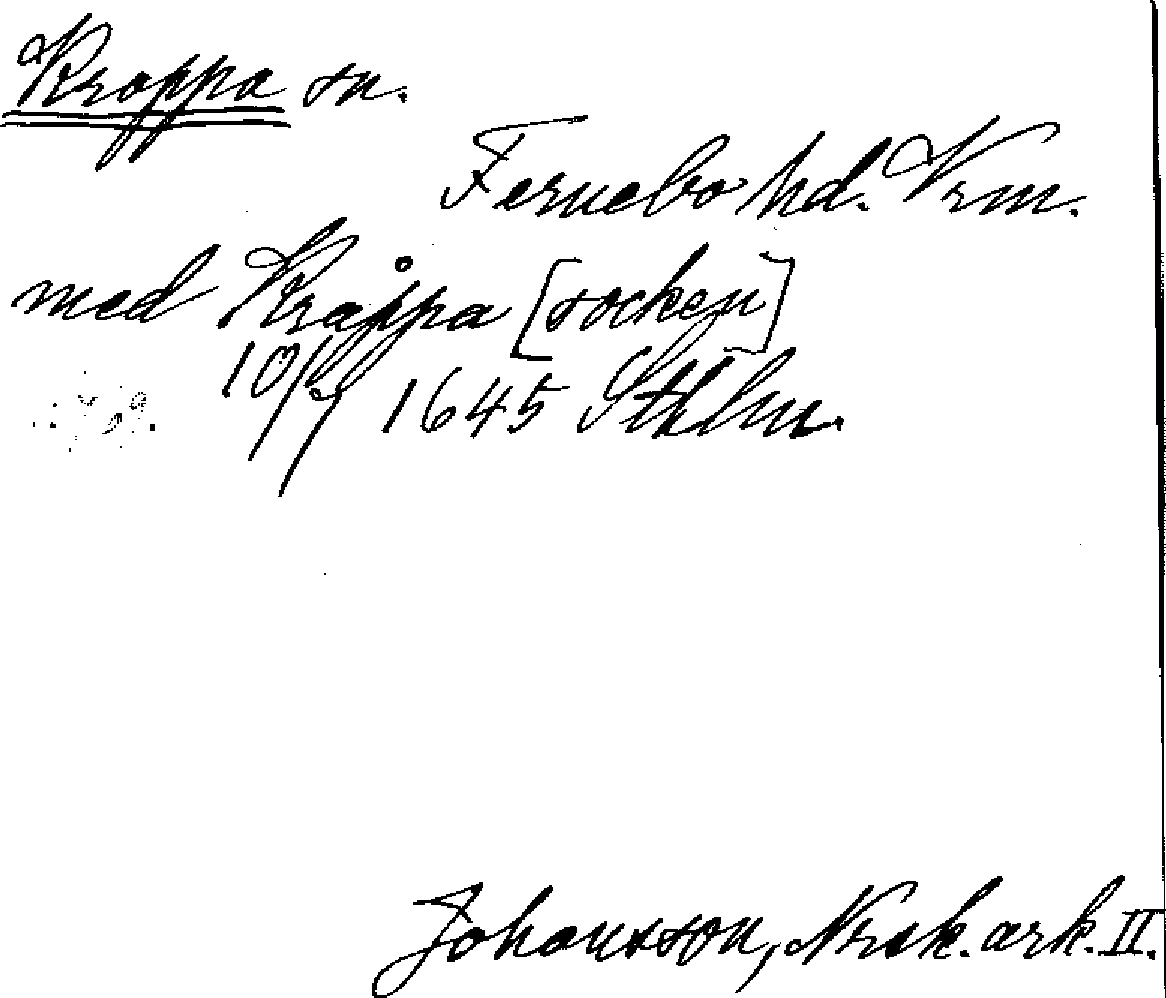 Kroppa sn.
Fernebo hd. Vrm.
med Kråppa [socken]
10/7 1645 Sthlm.
Johansson, Nrsk. ark. II.